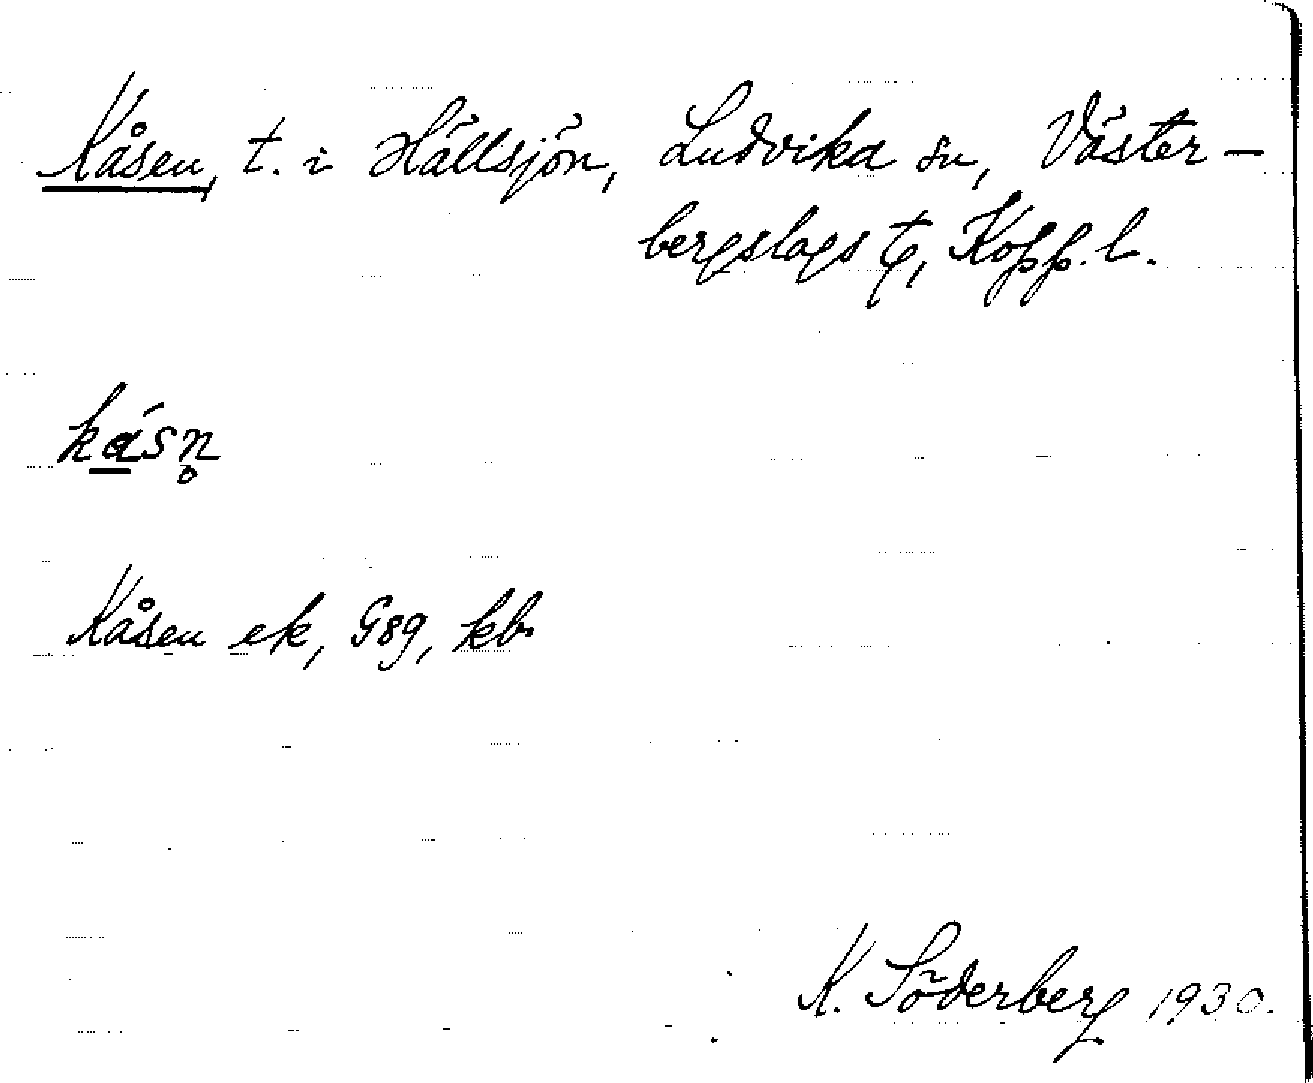 Kåsen, t. i Hällsjön, Ludvika sn, Väster-
bergslags tg, Kopp. l.
kásn̥
Kåsen ek, G89, kb
K. Söderberg 1930.